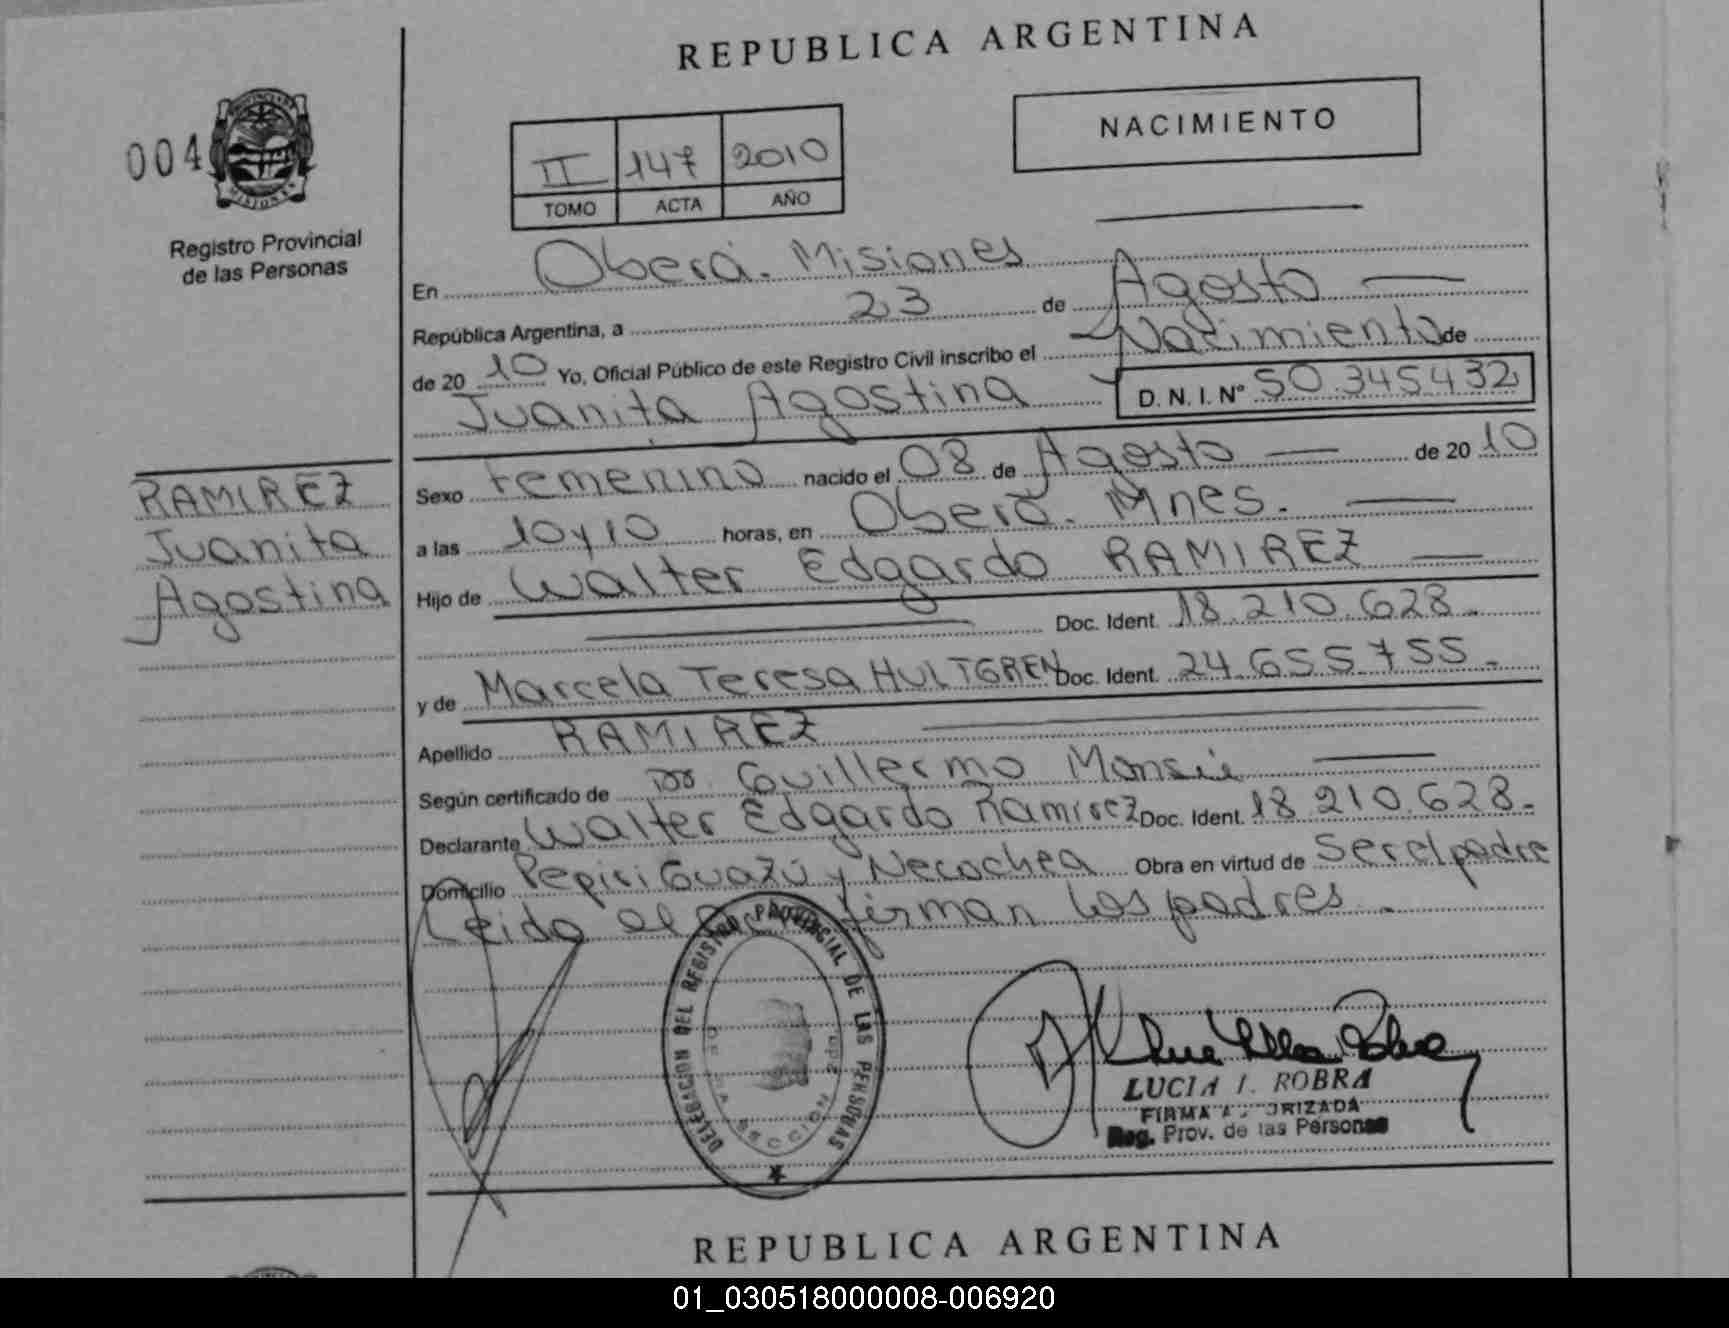 REPUBLICA ARGENTINA
NACIMIENTO
004
PROVINCIA DE MISIONES
Registro Provincial
de las Personas
II 147 2010
TOMO ACTA AÑO
En Oberá. Misiones
República Argentina, a 23 de Agosto
de 2010 Yo, Oficial Público de este Registro Civil inscribo el Nacimiento de
Juanita Agostina D. N. I. Nº 50.345.432
RAMIREZ
Juanita
Agostina
Sexo Femenino nacido el 08 de Agosto de 2010
a las 10 y 10 horas, en Oberá. Mnes.
Hijo de Walter Edgardo RAMIREZ
Doc. Ident. 18.210.628.
y de Marcela Teresa HULTGREN Doc. Ident. 24.655.755.
Apellido RAMIREZ
Según certificado de Dr. Guillermo
Declarante Walter Edgardo Ramirez Doc. Ident. 18.210.628.
Domicilio Pepiri Guazú y Necochea Obra en virtud de Ser el padre
Leida el firman los padres.
DELEGACION DEL REGISTRO PROVINCIAL DE LAS PERSONAS
SECCION
LUCIA I. ROBRA
FIRMA AUTORIZADA
Reg. Prov. de las Personas
REPUBLICA ARGENTINA
01_030518000008-006920